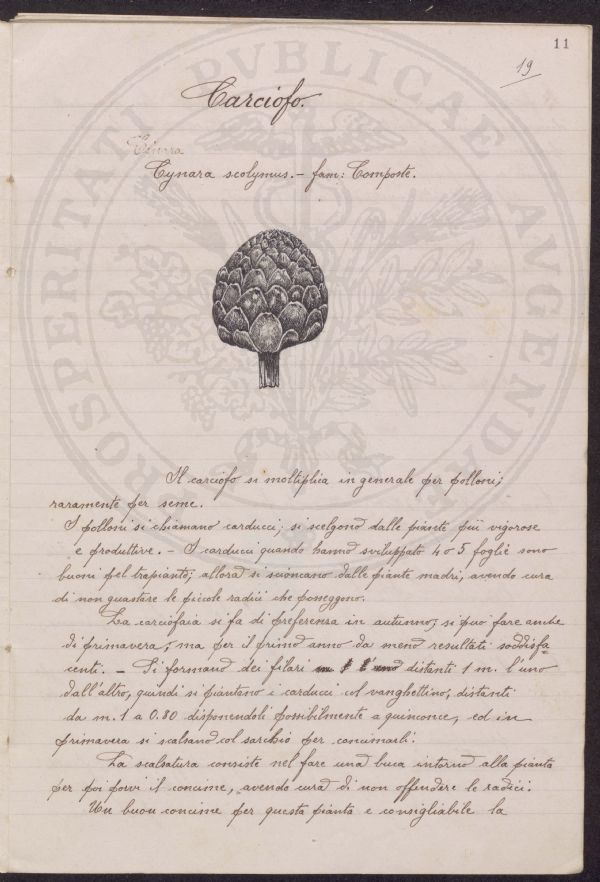 11
19
Carciofo.
Cynara
Cynara scolymus. — fam: Composte.
PROSPERITATI PVBLICAE AVGENDAE
Il carciofo si moltiplica in generale per polloni;
raramente per seme.
I polloni si chiamano carducci; si scelgono dalle piante più vigorose
e produttive. — I carducci quando hanno sviluppato 4 o 5 foglie sono
buoni pel trapianto; allora si scioncano dalle piante madri, avendo cura
di non guastare le piccole radici che posseggono.
La carciofaia si fa di preferenza in autunno; si può fare anche
di primavera, ma per il primo anno da meno resultati soddisfa-
centi. — Si formano dei filari distanti 1 m. l'uno
dall'altro, quindi si piantano i carducci col vanghettino, distanti
da m. 1 a 0.80 disponendoli possibilmente a quinconce, ed in
primavera si scalsano col sarchio per concimarli.
La scalsatura consiste nel fare una buca intorno alla pianta
per poi porvi il concime, avendo cura di non offendere le radici.
Un buon concime per questa pianta e consigliabile la